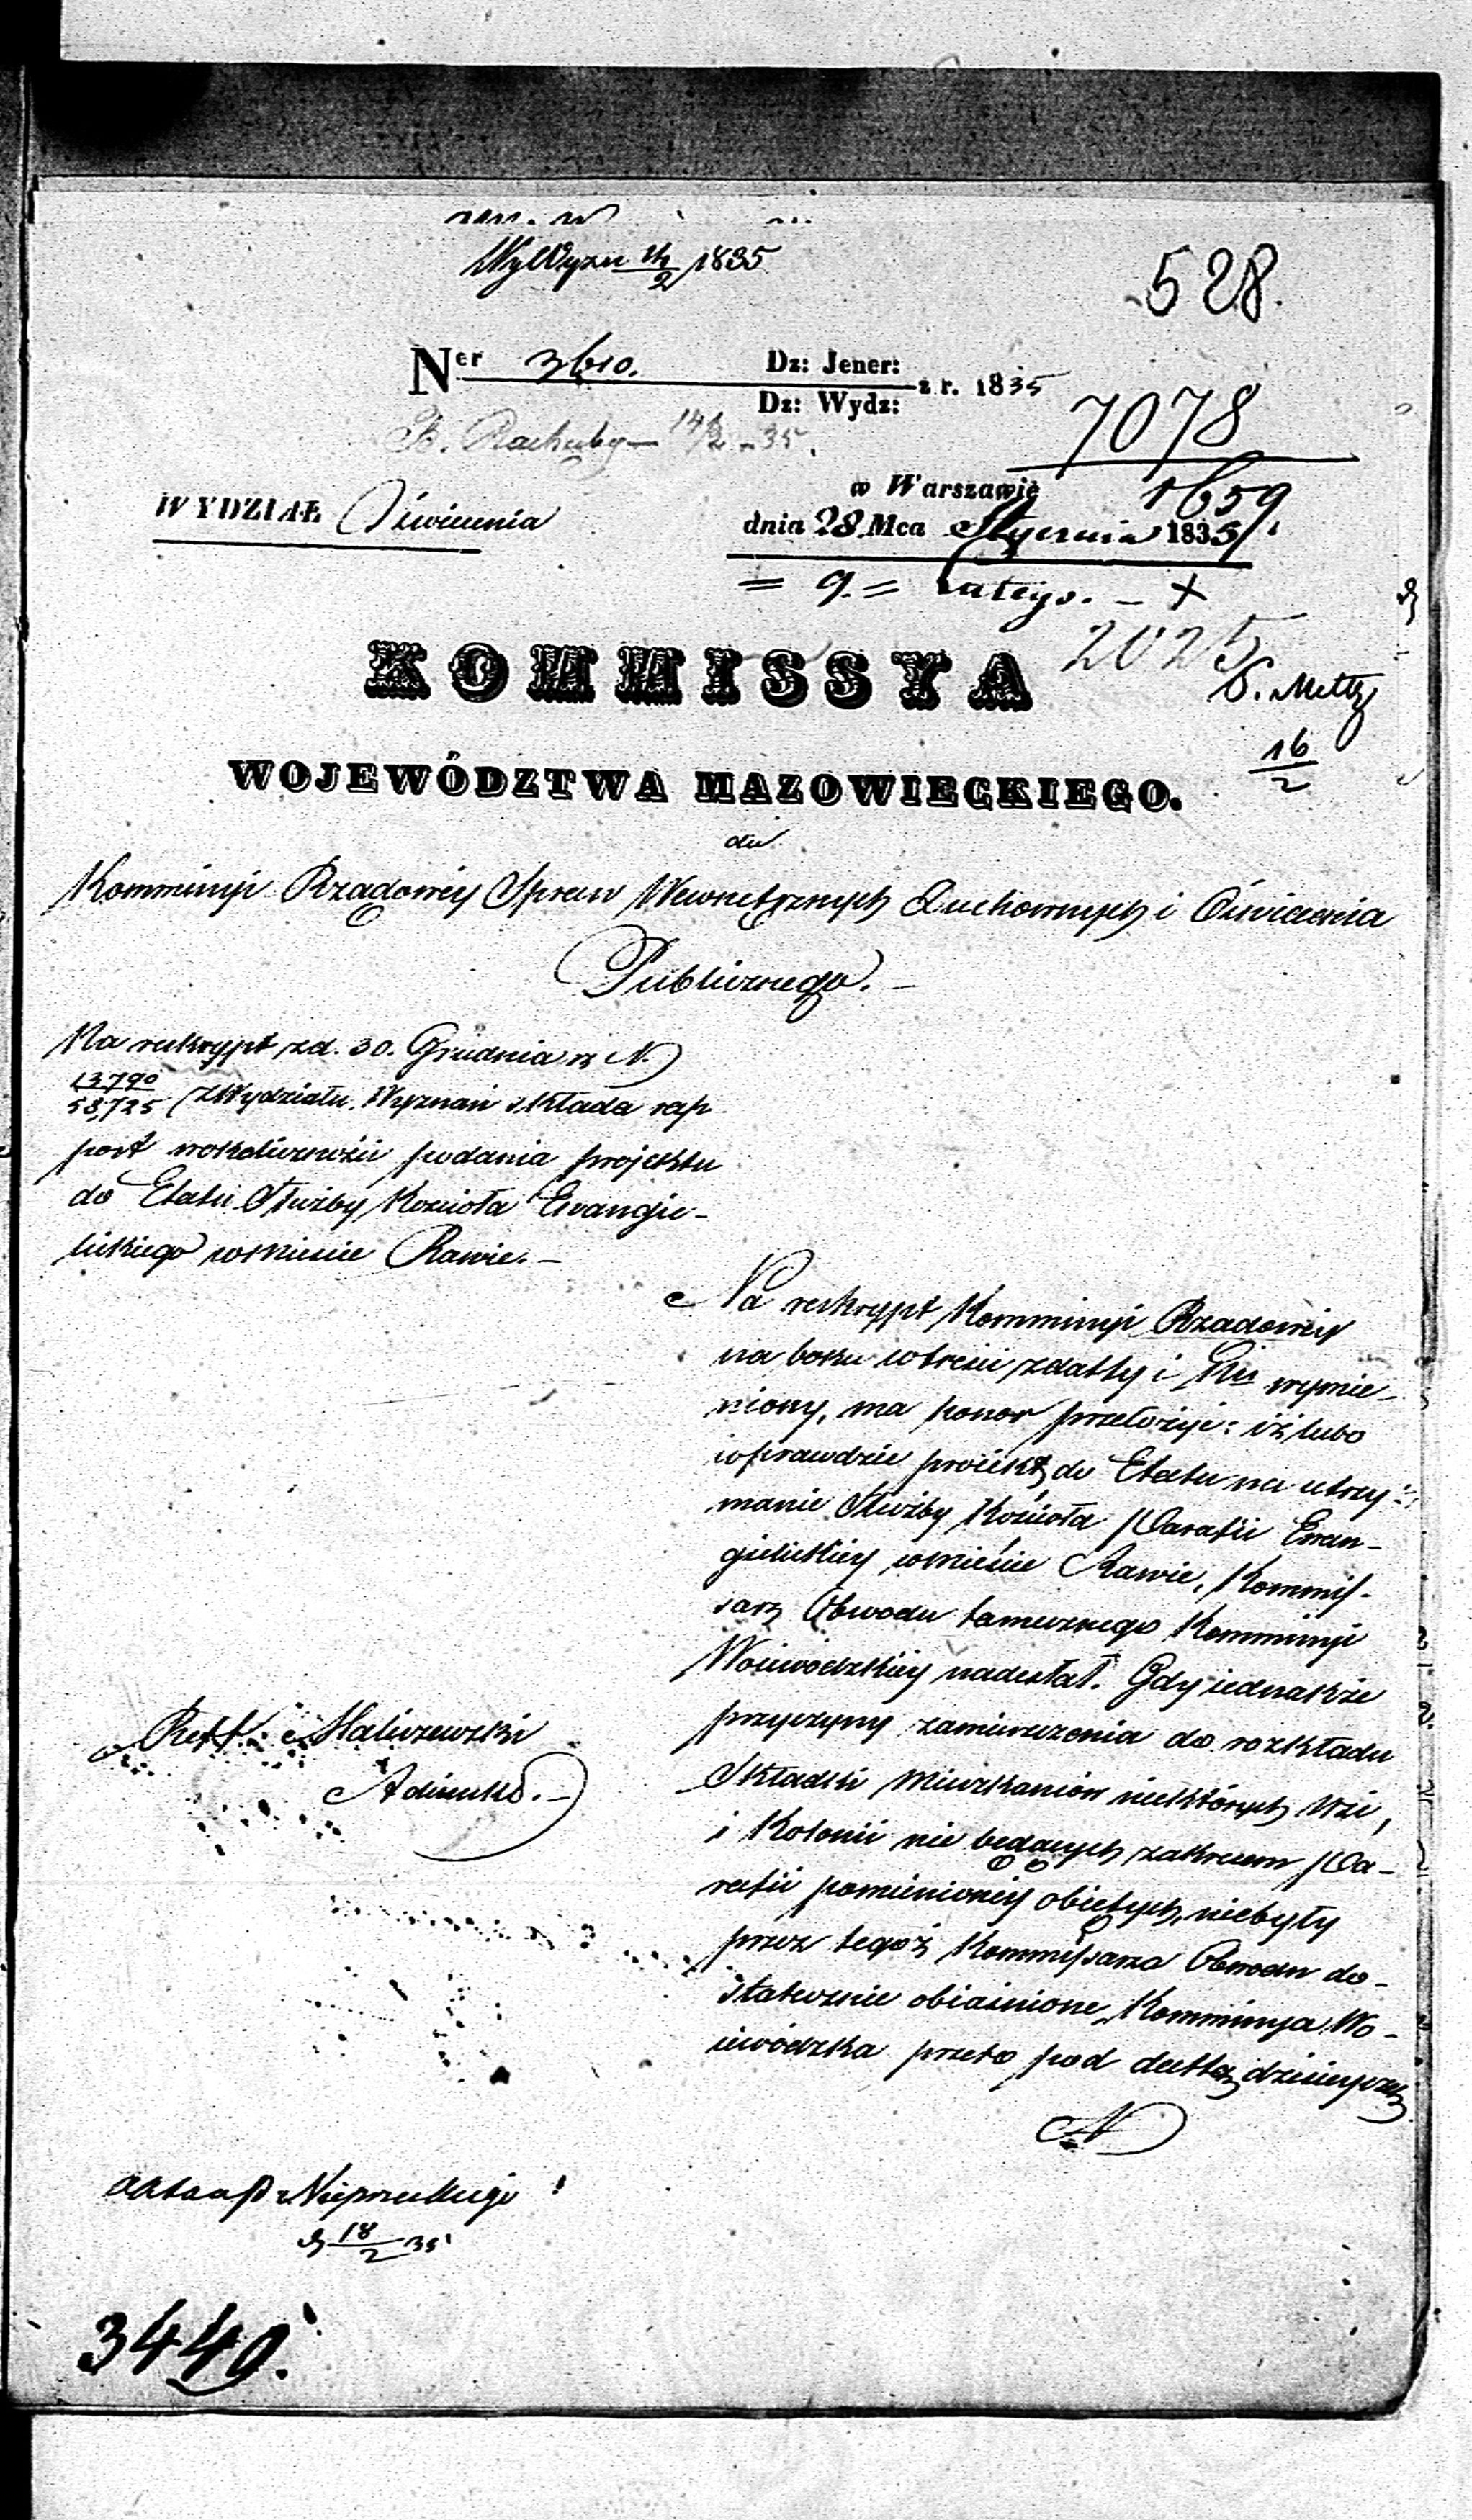 1835
528.
Ner 3610. Dz: Jener: z r. 1835
Dz: Wydz:
7078
B. Rachuby — 14/2 - 35.
w Warszawie
1659.
WYDZIAŁ Oświecenia
dnia 28 Mca Stycznia 1835
= 9. = Lutego. — X
2025
KOMMISSYA
16/2
WOJEWÓDZTWA MAZOWIECKIEGO.
do
Kommissyi Rządowéy Spraw Wewnętrznych Duchownych i Oświecenia
Publicznego. —
Na reskrypt z d. 30. Grudnia r. z. N.
13790/58,725 z Wydziału Wyznań składa rap
port w okoliczności podania projektu
do Etatu Służby Kościoła Ewangie-
lickiego w mieście Rawie. —
Na reskrypt Kommissyi Rządowéy
na boku w treści z datty i Nru wymie-
niony, ma honor przełożyć: iż lubo
wprawdzie proiekt do Etatu na utrzy-
manie Służby Kościoła Parafii Ewan-
gielickiéy w mieście Rawie, Kommis-
sarz Obwodu tamecznego Kommissyi
Woiewódzkiéy nadesłał. Gdy iednakże
przyczyny zamieszczenia do rozkładu
Składki Mieszkańców niektórych Wsi,
i Kolonii nie będących zakresem Pa-
rafii pomienionéy obiętych, niebyły
przez tegoż Kommissarza Obwodu do-
statecznie obiaśnione, Kommissya Wo-
iewódzka przeto pod dattą dzisieyszą
Reff: Haliszewski
Adiunkt. —
18/2 35
3440.